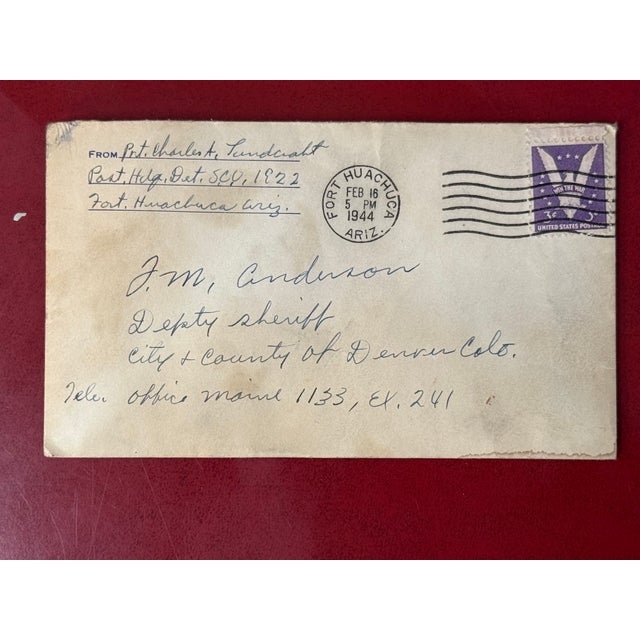 FROM Prt. Charles A, Lundcraht
Post. Hdq. Det. SCU, 1922
Fort. Huachuca Ariz.
FORT HUACHUCA
FEB 16
5 PM
1944
ARIZ.
WIN THE WAR
3¢ 3¢
UNITED STATES POSTAGE
J. M, Anderson
Depty sheriff
City & County of Denver Colo.
Tele. Office Maine 1133, EX. 241